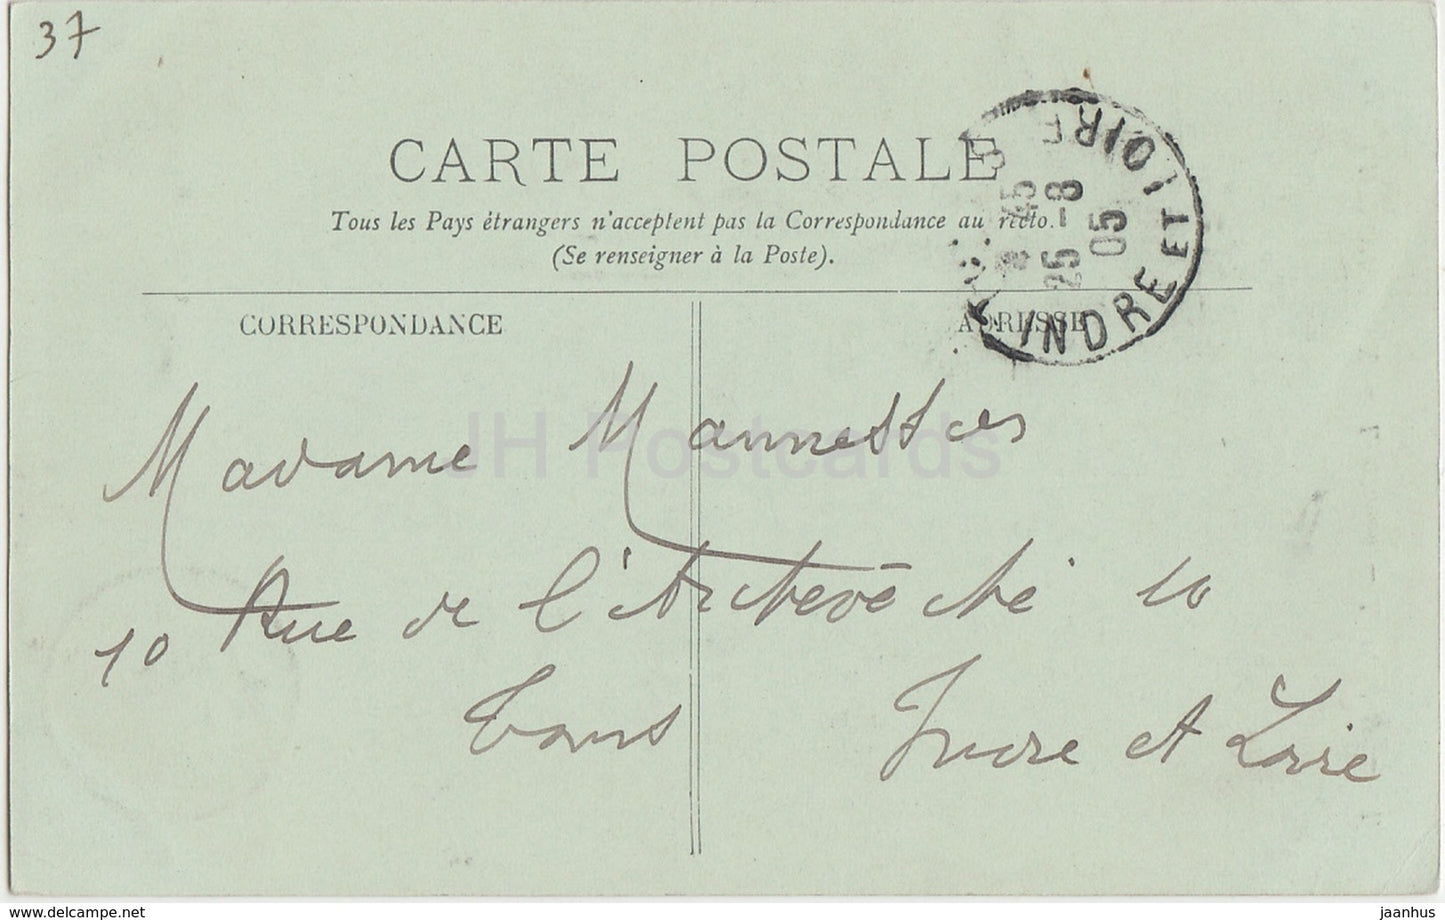 37
CARTE POSTALE
Tous les Pays étrangers n'acceptent pas la Correspondance au recto.
(Se renseigner à la Poste).
45
25 -8
05
INDRE ET LOIRE
CORRESPONDANCE
ADRESSE
JH Postcards
Madame
10 Rue de l'Archevêché 10
Tours Indre et Loire
delcampe.net
jaanhus